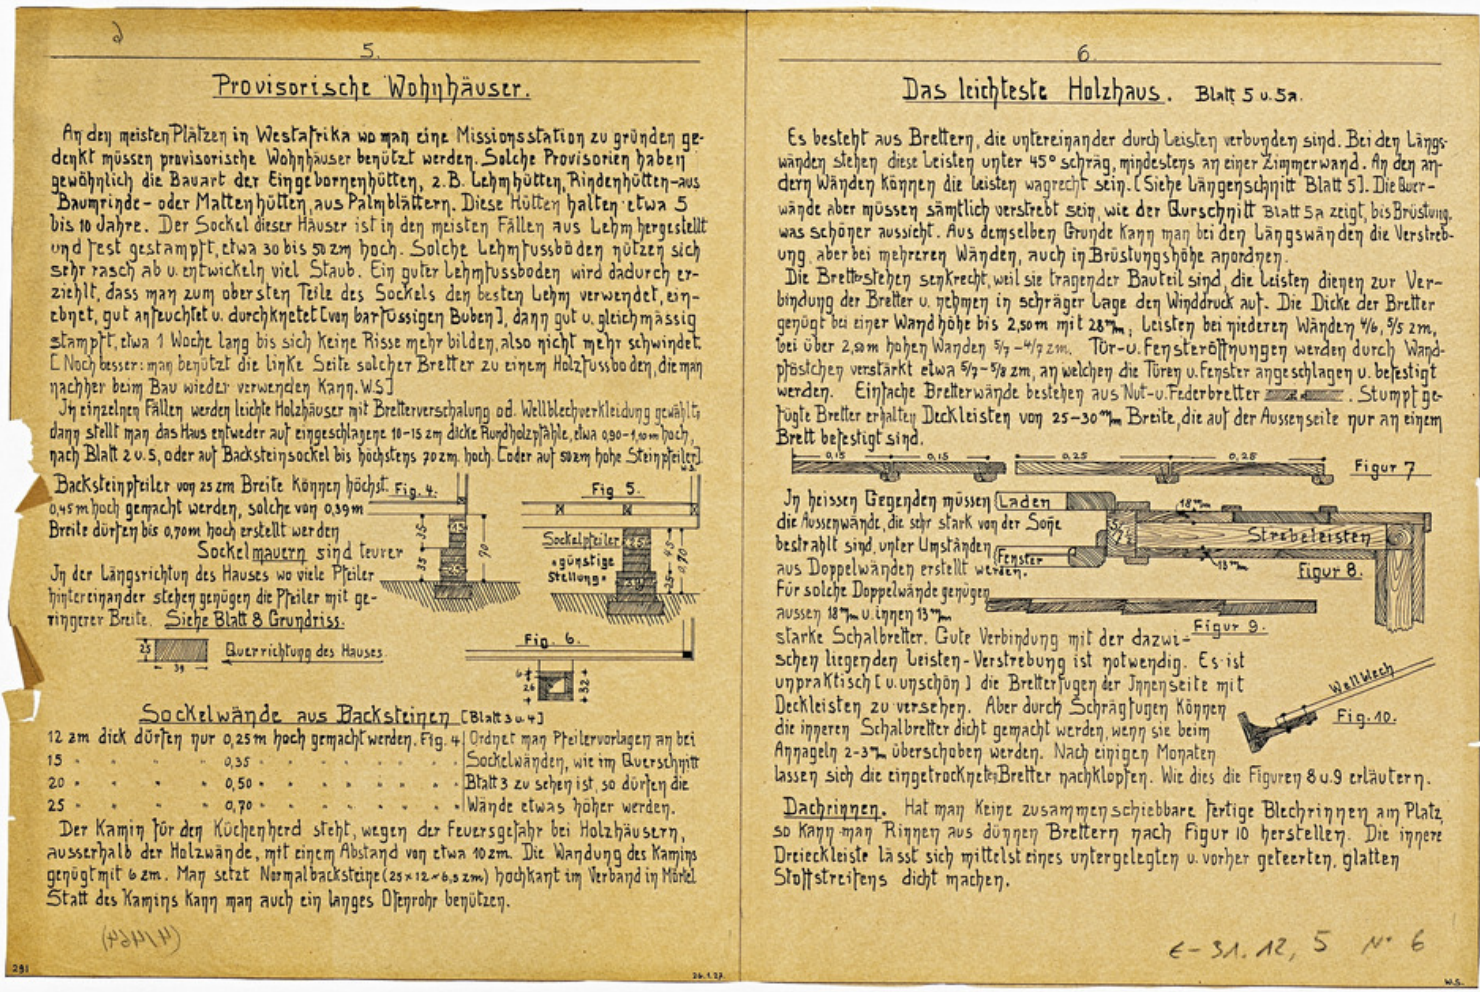 5.
Provisorische Wohnhäuser.
An den meisten Plätzen in Westafrika wo man eine Missionsstation zu gründen ge-
denkt müssen provisorische Wohnhäuser benützt werden. Solche Provisorien haben
gewöhnlich die Bauart der Eingebornenhütten, z.B. Lehmhütten, Rindenhütten-aus
Baumrinde- oder Mattenhütten, aus Palmblättern. Diese Hütten halten etwa 5
bis 10 Jahre. Der Sockel dieser Häuser ist in den meisten Fällen aus Lehm hergestellt
und fest gestampft, etwa 30 bis 50 zm hoch. Solche Lehmfussböden nützen sich
sehr rasch ab u. entwickeln viel Staub. Ein guter Lehmfussboden wird dadurch er-
ziehlt, dass man zum obersten Teile des Sockels den besten Lehm verwendet, ein-
ebnet, gut anfeuchtet u. durchknetet [von barfüssigen Buben], dann gut u. gleichmässig
stampft, etwa 1 Woche lang bis sich keine Risse mehr bilden, also nicht mehr schwindet.
[Noch besser: man benützt die linke Seite solcher Bretter zu einem Holzfussboden, die man
nachher beim Bau wieder verwenden kann. W.S]
In einzelnen Fällen werden leichte Holzhäuser mit Bretterverschalung od. Wellblechverkleidung gewählt,
dann stellt man das Haus entweder auf eingeschlagene 10-15 zm dicke Rundholzpfähle, etwa 0,90-1,10m hoch,
nach Blatt 2 u. 5, oder auf Backsteinsockel bis höchstens 70 zm. hoch. [oder auf 50 zm hohe Steinpfeiler]
W.S.
Backsteinpfeiler von 25 zm Breite können höchst.
0,45 m hoch gemacht werden, solche von 0,39 m
Breite dürfen bis 0,70 m hoch erstellt werden
Sockelmauern sind teurer
In der Längsrichtun des Hauses wo viele Pfeiler
hintereinander stehen genügen die Pfeiler mit ge-
ringerer Breite. Siehe Blatt 8 Grundriss.
Fig. 4.
35 35
70
Fig 5.
Sockelpfeiler
günstige
Stellung
25 45
0,70
25
39
Querrichtung des Hauses.
Fig. 6.
6
26
32
Sockelwände aus Backsteinen [Blatt 3 u. 4]
12 zm dick dürfen nur 0,25 m hoch gemacht werden. Fig. 4
15 " " " 0,35 " " "
20 " " " 0,50 " " "
25 " " " 0,70 " " "
Ordnet man Pfeilervorlagen an bei
Sockelwänden, wie im Querschnitt
Blatt 3 zu sehen ist, so dürfen die
Wände etwas höher werden.
Der Kamin für den Küchenherd steht, wegen der Feuersgefahr bei Holzhäusern,
ausserhalb der Holzwände, mit einem Abstand von etwa 10 zm. Die Wandung des Kamins
genügt mit 6 zm. Man setzt Normalbacksteine (25 x 12 x 6,5 zm) hochkant im Verband in Mörtel
Statt des Kamins kann man auch ein langes Ofenrohr benützen.
291
26.1.27.
6.
Das leichteste Holzhaus. Blatt 5 u. 5a.
Es besteht aus Brettern, die untereinander durch Leisten verbunden sind. Bei den Längs-
wänden stehen diese Leisten unter 45° schräg, mindestens an einer Zimmerwand. An den an-
dern Wänden können die Leisten wagrecht sein. [Siehe Längenschnitt Blatt 5]. Die Quer-
wände aber müssen sämtlich verstrebt sein, wie der Qurschnitt Blatt 5a zeigt, bis Brüstung,
was schöner aussicht. Aus demselben Grunde kann man bei den Längswänden die Verstreb-
ung, aber bei mehreren Wänden, auch in Brüstungshöhe anordnen.
Die Bretter stehen senkrecht, weil sie tragender Bauteil sind, die Leisten dienen zur Ver-
bindung der Bretter u. nehmen in schräger Lage den Winddruck auf. Die Dicke der Bretter
genügt bei einer Wandhöhe bis 2,50 m mit 28 m/m, Leisten bei niederen Wänden 4/6, 5/5 zm,
bei über 2,50 m hohen Wänden 5/7 - 4/7 zm. Tür- u. Fensteröffnungen werden durch Wand-
pföstchen verstärkt etwa 5/7 - 5/8 zm, an welchen die Türen u. Fenster angeschlagen u. befestigt
werden. Einfache Bretterwände bestehen aus Nut- u. Federbretter . Stumpf ge-
fügte Bretter erhalten Deckleisten von 25-30 m/m Breite, die auf der Aussenseite nur an einem
Brett befestigt sind.
0,15 0,15 0,25 0,25 Figur 7
In heissen Gegenden müssen
die Aussenwände, die sehr stark von der Sone
bestrahlt sind, unter Umständen
aus Doppelwänden erstellt werden.
Für solche Doppelwände genügen
aussen 18 m/m u. innen 13 m/m
Laden
Fenster
5/7
18 m/m
Strebeleisten
13 m/m
Figur 8.
Figur 9.
starke Schalbretter. Gute Verbindung mit der dazwi-
schen liegenden Leisten-Verstrebung ist notwendig. Es ist
unpraktisch [u. unschön] die Bretterfugen der Innenseite mit
Deckleisten zu versehen. Aber durch Schrägfugen können
die inneren Schalbretter dicht gemacht werden, wenn sie beim
Annageln 2-3 m/m überschoben werden. Nach einigen Monaten
lassen sich die eingetrockneten Bretter nachklopfen. Wie dies die Figuren 8 u. 9 erläutern.
Wellblech
Fig. 10.
Dachrinnen. Hat man keine zusammenschiebbare fertige Blechrinnen am Platz,
so kann man Rinnen aus dünnen Brettern nach Figur 10 herstellen. Die innere
Dreieckleiste lässt sich mittelst eines untergelegten u. vorher geteerten, glatten
Stoffstreifens dicht machen.
E-31.12,5 No 6
W.S.